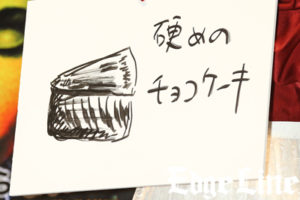 硬めの
チョコケーキ
Edge Line